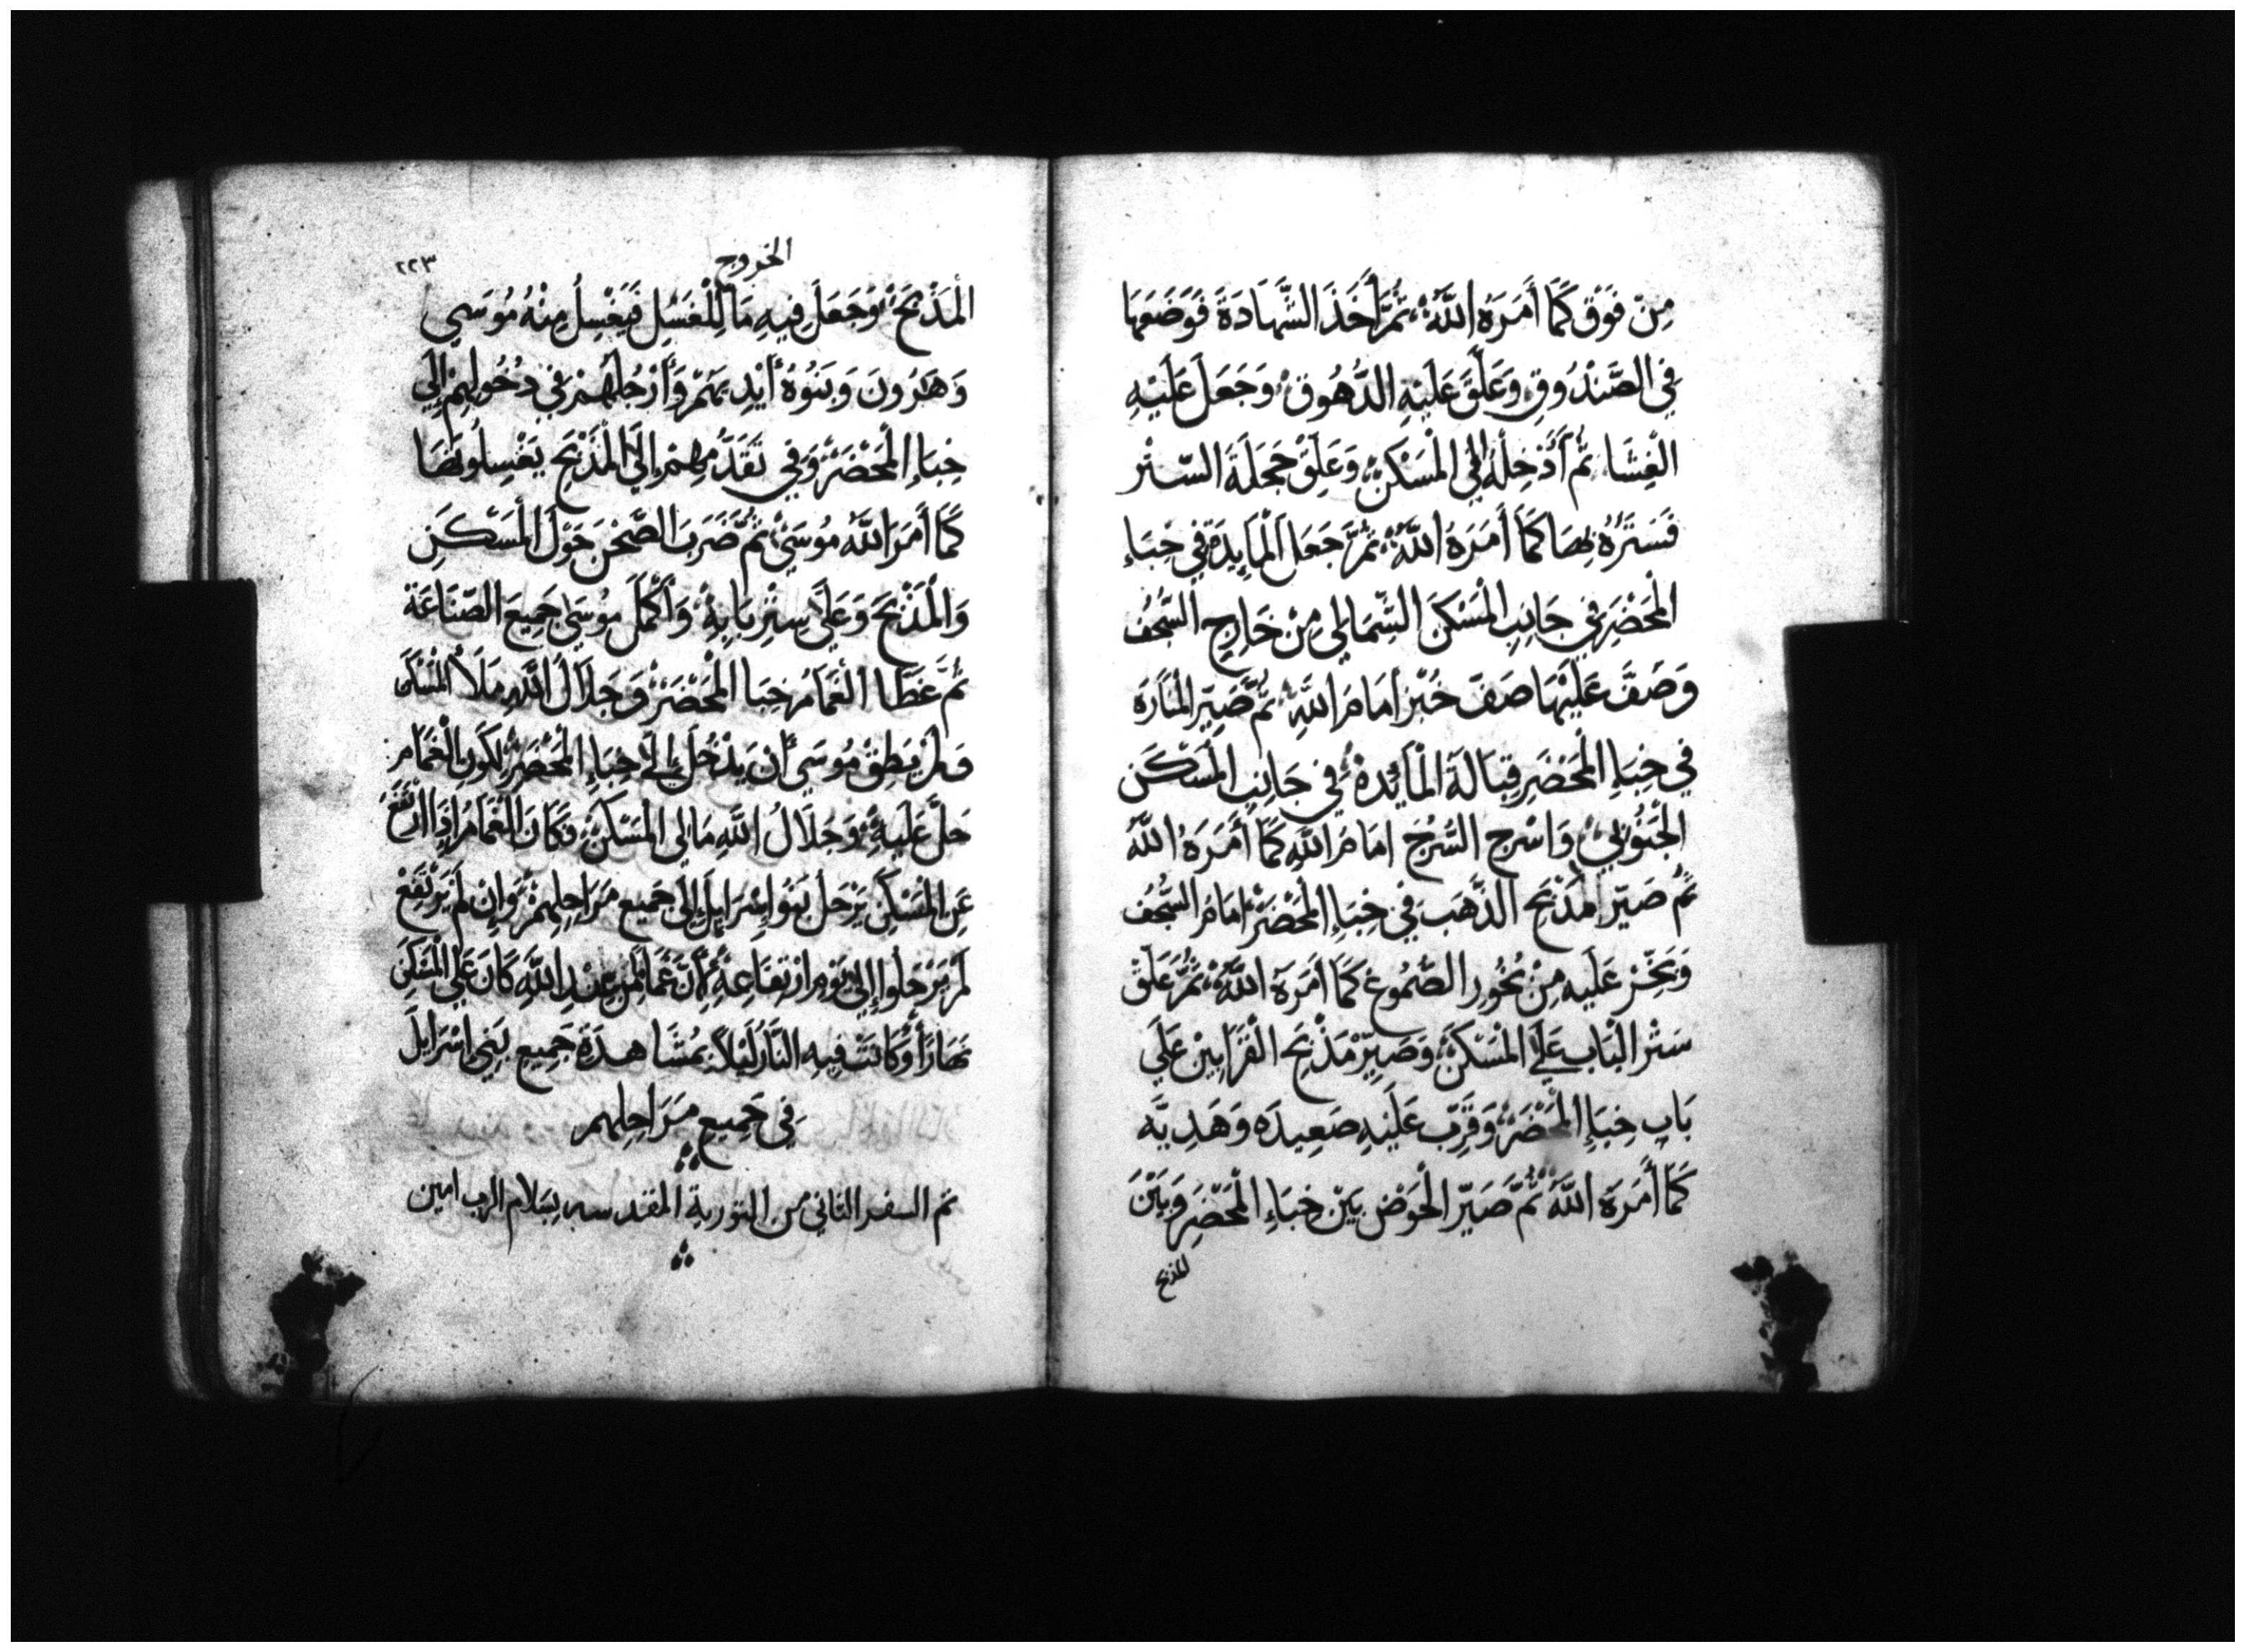 مِنْ فَوْق كَمَا أَمَرَهُ اللَّهُ ثُمَّ أَخَذَ الشَّهَادَةَ فَوَضَعَهَا
فِي الصَّنْدُوقِ وَعَلَّقَ عَلَيْهِ الدُّهُوقْ وَجَعَلَ عَلَيْهِ
الْغِشَا ثُمَّ أَدْخِلُهُ إِلَى الْمَسْكَنْ وَعَلِّقْ حَجَلَةَ السّتْر
فَسَتَرَهُ بِهَا كَمَا أَمَرَهُ اللَّهُ ثُمَّ جَعَلَ الْمَايِدَة فِي خِبَاءِ
الْمَحْضَرِ فِي جَانِبِ الْمَسْكَنَ الشّمَالِي مِنْ خَارِج السَّجُف
وَصَفَّ عَلَيْهَا صَفّ خُبْز امَامَ اللَّهِ ثُمَّ صَيّرَ الْمَنَارَه
فِي خِبَاءِ الْمَحْضَرِ قِبَالَة الْمَائِدَةْ فِي جَانِبِ الْمَسْكَن
الْجَنُوبِيْ وَاسْرج السُّرُجَ امَامَ اللَّهِ كَمَا أَمَرَهُ اللَّهُ
ثُمَّ صَيّرَ مَذْبَح الذَّهَب فِي خِبَاءِ الْمَحْضَرْ امَامَ السَّجُف
وَبَخَّرَ عَلَيْهِ مِنْ بُخُورِ الصُّمُوغ كَمَا أَمَرَهُ اللَّهُ ثُمَّ عَلَّقَ
سَتْر الْبَابِ عَلَى الْمَسْكَنْ وَصَيّرْ مَذْبَح الْقَرَابِينْ عَلَي
بَاب خِبَاءِ الْمَحْضَرْ وَقَرَّب عَلَيْهِ صَعِيدَه وَهَدِيَّه
كَمَا أَمَرَهُ اللَّهُ ثُمَّ صَيّرَ الْحَوْض بَيْن خِبَاءِ الْمَحْضَرِ وَبَيْنَ
المذبح
الخروج
٢٢٣
الْمَذْبَحْ وَجَعَلَ فِيهِ مَا لِلْغَسْلِ فَيَغْسِلُ مِنْهُ مُوسَي
وَهَرُونَ وَبَنُوهُ أَيْدِيَهَمْ وَأَرْجُلَهُمْ فِي دُخُولِهِمْ إِلَي
خِبَاءِ الْمَحْضَرْ وَفِي تَقَدُّمِهِمْ إِلَى الْمَذْبَح يَغْسِلُونَهَا
كَمَا أَمَرَ اللَّهُ مُوسَيْ ثُمَّ ضَرَبَ الصَّحْنَ حَوْلَ الْمَسْكَنِ
وَالْمَذْبَحَ وَعَلَّي سِتْر بَابِهْ وَأَكْمَلَ مُوسَى جَمِيعَ الصّنَاعَة
ثُمَّ غَطَّا الغَمَامُ خِبَا الْمَحْضَرْ وَجَلَالُ اللَّهِ مَلَأَ الْمَسْكَنَ
وَلَمْ يَطِقْ مُوسَي أَنْ يَدْخُلَ إِلَى خِبَاءِ الْمَحْضَرْ لِكَوْنِ الْغَمَامِ
حَلَّ عَلَيْهْ وَجَلَالُ اللَّهِ مَالِي الْمَسْكَنْ فَكَانَ الْغَمَامُ إِذَا ارْتَفَعَ
عَنِ الْمَسْكَنِ يَرْحَلْ بَنُو إِسْرَايِلَ إِلَى جَمِيعِ مَرَاحِلِهِمْ وَإِن لَمْ يَرْتَفِعْ
لَمْ يَرْحَلُوا إِلَى يَوْمِ ارْتِفَاعِهْ لِأَنَّ غَمَام مِنْ عِنْدِ اللَّهِ كَانَ عَلَي الْمَسْكَنِ
نَهَارًا وَكَانَتْ فِيهِ النَّارُ لَيْلًا بِمُشَاهَدَةِ جَمِيعِ بَنِي اسْرَايِلَ
فِي جَمِيعِ مَرَاحِلِهِمْ
تم السفر الثاني من التورية المقدسه بسلام الرب امين